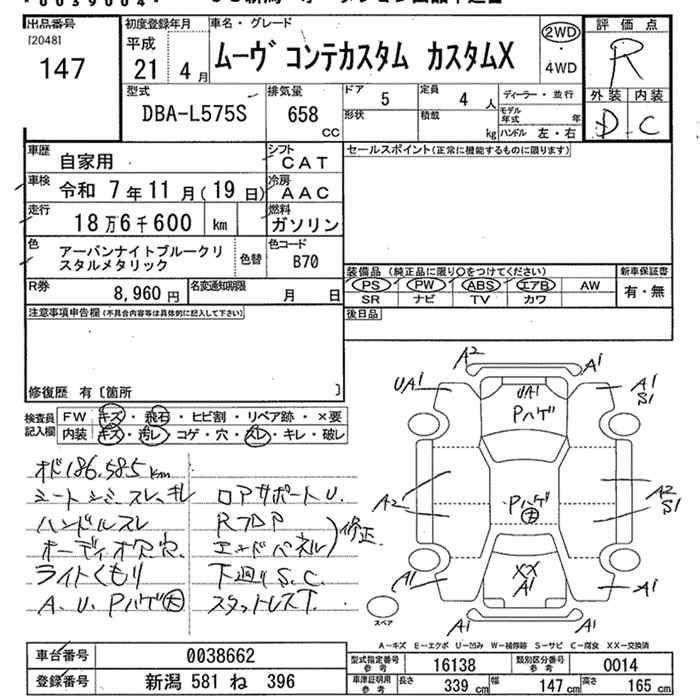 出品番号
[2048]
147
初度登録年月
平成
21 4月
車名・グレード
ムーヴ コンテカスタム カスタムX
2WD
・
4WD
評価点
R
外装 内装
D C
型式
DBA-L575S
排気量
658 CC
ドア 5
形状
定員 4 人
積載 kg
ディーラー・並行
モデル年式 年
ハンドル 左・右
車歴 自家用
シフト CAT
車検 令和 7年11月(19日)
冷房 AAC
走行 18万6千600 km
燃料 ガソリン
色 アーバンナイトブルークリスタルメタリック
色替
色コード B70
R券 8,960円
名変通知期限 月 日
セールスポイント(正常に機能するものに限ります)
装備品 (純正品に限り○をつけてください)
PS PW ABS エアB AW
SR ナビ TV カワ
新車保証書
有・無
後日品
注意事項申告欄(不具合内容等は具体的に記入して下さい)
修復歴 有〔箇所 〕
検査員記入欄
FW キズ・飛石・ヒビ割・リペア跡・×要
内装 キズ・汚レ・コゲ・穴・スレ・キレ・破レ
オド186.585km
シートシミ スレ、キレ
ハンドルスレ
オーディオ穴
ライトくもり
A.U.Pハゲ大
ロアサポートU.
RフロP
エンドパネル 修正
下廻りS.C.
スタットレス下.
A2 A1
UA1 UA1 A1 S1
Pハゲ
A2 Pハゲ大 A2 S1
XX
A1 A1 A1
A1 A1
スペア
A-キズ E-エクボ U-凹み W-補修跡 S-サビ C-腐食 XX-交換済
車台番号 0038662
登録番号 新潟 581 ね 396
型式指定番号 参考 16138
類別区分番号 参考 0014
車庫証明用 参考
長さ 339 cm 幅 147 cm 高さ 165 cm